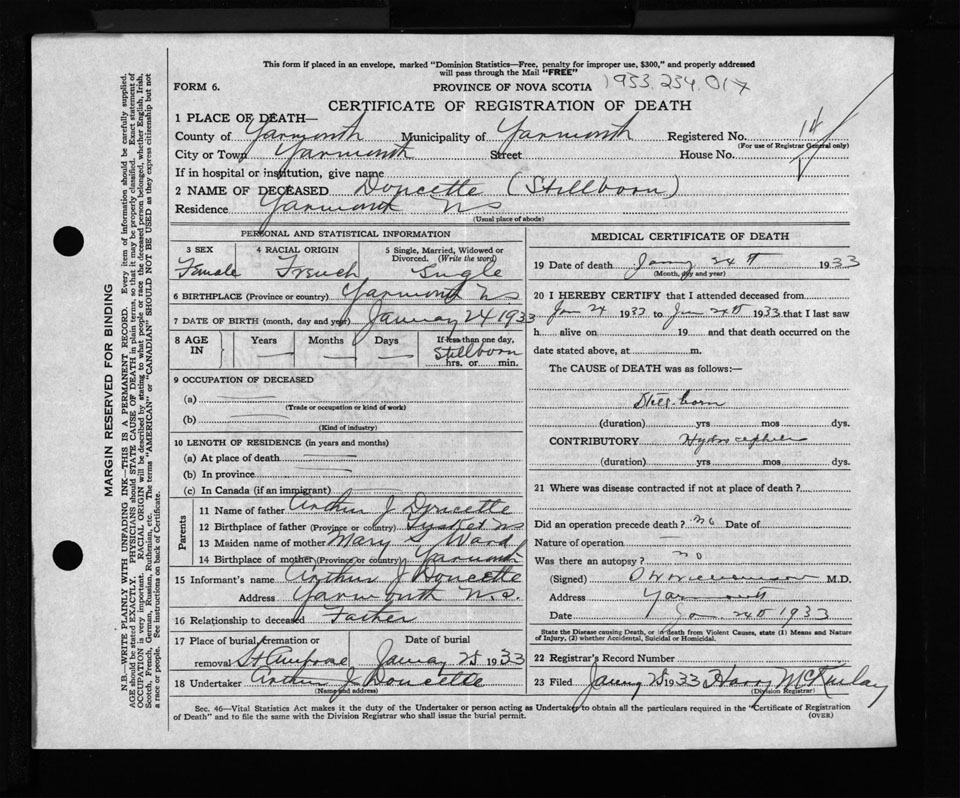 This form if placed in an envelope, marked "Dominion Statistics—Free, penalty for improper use, $300," and properly addressed
will pass through the Mail "FREE"
FORM 6. PROVINCE OF NOVA SCOTIA 1933.234.017
CERTIFICATE OF REGISTRATION OF DEATH
1 PLACE OF DEATH—
County of Yarmouth Municipality of Yarmouth Registered No. 14
(For use of Registrar General only)
City or Town Yarmouth Street House No.
If in hospital or institution, give name
2 NAME OF DECEASED Doucette (Stillborn)
Residence Yarmouth NS
(Usual place of abode)
PERSONAL AND STATISTICAL INFORMATION
3 SEX 4 RACIAL ORIGIN 5 Single, Married, Widowed or
Divorced. (Write the word)
Female French Single
6 BIRTHPLACE (Province or country) Yarmouth NS
7 DATE OF BIRTH (month, day and year) January 24 1933
8 AGE IN Years Months Days If less than one day,
Stillborn
hrs. or min.
9 OCCUPATION OF DECEASED
(a)
(Trade or occupation or kind of work)
(b)
(Kind of industry)
10 LENGTH OF RESIDENCE (in years and months)
(a) At place of death
(b) In province
(c) In Canada (if an immigrant)
Parents
11 Name of father Arthur J Doucette
12 Birthplace of father (Province or country) Tusket NS
13 Maiden name of mother Mary S Ward
14 Birthplace of mother (Province or country) Yarmouth
15 Informant's name Arthur J Doucette
Address Yarmouth N.S.
16 Relationship to deceased Father
17 Place of burial, cremation or Date of burial
removal St Ambrose January 25 1933
18 Undertaker Arthur J Doucette
(Name and address)
MEDICAL CERTIFICATE OF DEATH
19 Date of death Jany 24th 1933
(Month, day and year)
20 I HEREBY CERTIFY that I attended deceased from
Jan 24 1933 to Jan 24th 1933 that I last saw
h alive on 19 and that death occurred on the
date stated above, at m.
The CAUSE of DEATH was as follows:—
Still-born
(duration) yrs mos dys.
CONTRIBUTORY Hydrocephalus
(duration) yrs mos dys.
21 Where was disease contracted if not at place of death?
Did an operation precede death? no Date of
Nature of operation
Was there an autopsy? no
(Signed) M.D.
Address Yarmouth
Date Jan 24th 1933
State the Disease causing Death, or in death from Violent Causes, state (1) Means and Nature
of Injury, (2) whether Accidental, Suicidal or Homicidal.
22 Registrar's Record Number
23 Filed January 25 1933 Harry McKinlay
(Division Registrar)
Sec. 46—Vital Statistics Act makes it the duty of the Undertaker or person acting as Undertaker to obtain all the particulars required in the "Certificate of Registration
of Death" and to file the same with the Division Registrar who shall issue the burial permit. (OVER)
MARGIN RESERVED FOR BINDING
N.B.—WRITE PLAINLY WITH UNFADING INK—THIS IS A PERMANENT RECORD. Every item of information should be carefully supplied.
AGE should be stated EXACTLY. PHYSICIANS should STATE CAUSE OF DEATH in plain terms, so that it may be properly classified. Exact statement of
OCCUPATION is very important. RACIAL ORIGIN will be described by stating to what people or race the deceased person belonged, whether English, Irish,
Scotch, French, German, Russian, Ruthenian, etc. The terms "AMERICAN" or "CANADIAN" SHOULD NOT BE USED as they express citizenship but not
a race or people. See instructions on back of Certificate.